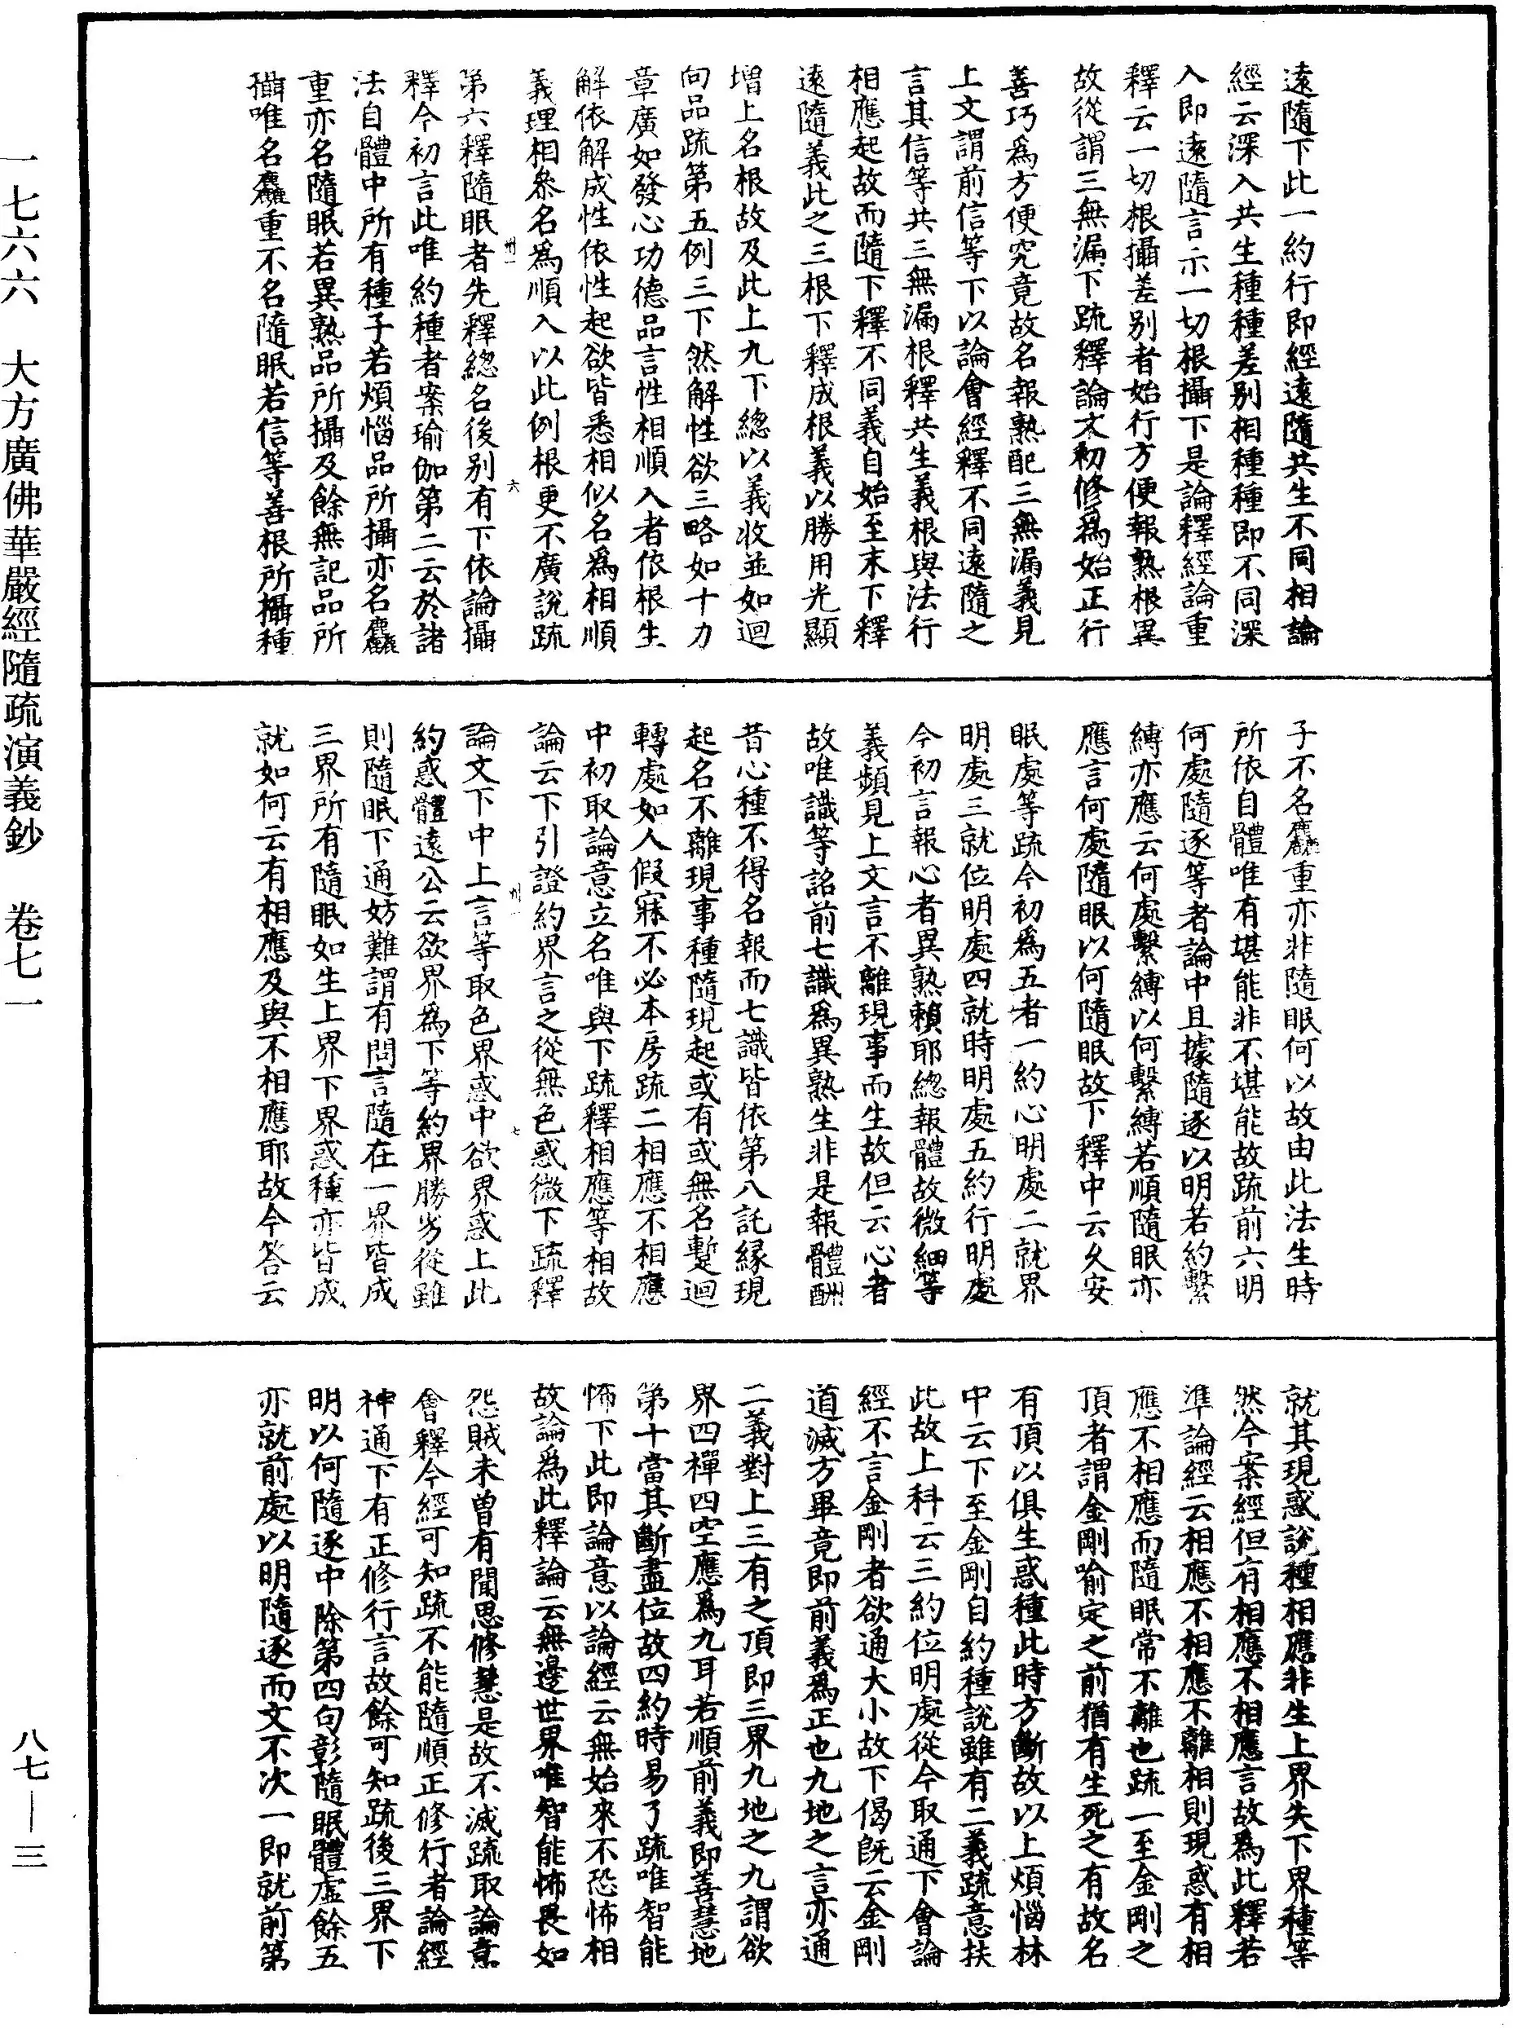 遠隨下此一約行即經遠隨共生不同相論
經云深入共生種種差別相種種即不同深
入即遠隨言示一切根攝下是論釋經論重
釋云一切根攝差別者始行方便報熟根異
故從謂三無漏下疏釋論文初修為始正行
善巧為方便究竟故名報熟配三無漏義見
上文謂前信等下以論會經釋不同遠隨之
言其信等共三無漏根釋共生義根與法行
相應起故而隨下釋不同義自始至末下釋
遠隨義此之三根下釋成根義以勝用光顯
增上名根故及此上九下總以義收並如迴
向品疏第五例三下然解性欲三略如十力
章廣如發心功德品言性相順入者依根生
解依解成性依性起欲皆悉相似名為相順
義理相參名為順入以此例根更不廣說疏
第六釋隨眠者先釋總名後别有下依論攝
釋今初言此唯約種者案瑜伽第二云於諸
法自體中所有種子若煩惱品所攝亦名麤
重亦名隨眠若異熟品所攝及餘無記品所
攝唯名麤重不名隨眠若信等善根所攝種
子不名麤重亦非隨眠何以故由此法生時
所依自體唯有堪能非不堪能故疏前六明
何處隨逐等者論中且據隨逐以明若約繫
縛亦應云何處繫縛以何繫縛若順隨眠亦
應言何處隨眠以何隨眠故下釋中云久安
眠處等疏今初為五者一約心明處二就界
明處三就位明處四就時明處五約行明處
今初言報心者異熟賴耶總報體故微細等
義頻見上文言不離現事而生故但云心者
故唯識等詺前七識為異熟生非是報體酬
昔心種不得名報而七識皆依第八託緣現
起名不離現事種隨現起或有或無名蹔迴
轉處如人假寐不必本房疏二相應不相應
中初取論意立名唯與下疏釋相應等相故
論云下引證約界言之從無色惑微下疏釋
論文下中上言等取色界惑中欲界惑上此
約惑體遠公云欲界為下等約界勝劣從雖
則隨眠下通妨難謂有問言隨在一界皆成
三界所有隨眠如生上界下界惑種亦皆成
就如何云有相應及與不相應耶故今答云
就其現惑說種相應非生上界失下界種等
然今案經但有相應不相應言故為此釋若
準論經云相應不相應不離相則現惑有相
應不相應而隨眠常不離也疏一至金剛之
頂者謂金剛喻定之前猶有生死之有故名
有頂以俱生惑種此時方斷故以上煩惱林
中云下至金剛自約種說雖有二義疏意扶
此故上科云三約位明處從今取通下會論
經不言金剛者欲通大小故下偈既云金剛
道滅方畢竟即前義為正也九地之言亦通
二義對上三有之頂即三界九地之九謂欲
界四禪四空應為九耳若順前義即善慧地
第十當其斷盡位故四約時易了疏唯智能
怖下此即論意以論經云無始來不恐怖相
故論為此釋論云無邊世界唯智能怖畏如
怨賊未曾有聞思修慧是故不滅疏取論意
會釋今經可知疏不能隨順正修行者論經
神通下有正修行言故餘可知疏後三界下
明以何隨逐中除第四句彰隨眠體虛餘五
亦就前處以明隨逐而文不次一即就前第
一七六六 大方廣佛華嚴經隨疏演義鈔 卷七一
八七—三